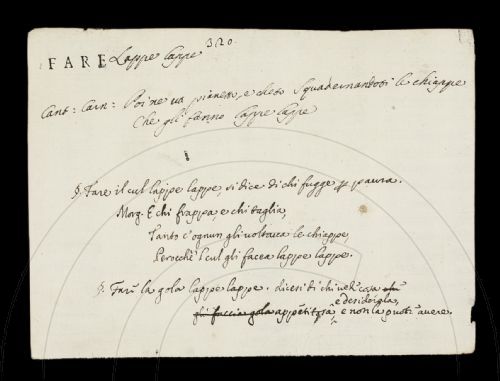 320.
FARE Lappe lappe
Cant: Carn: Poi ne va pianetto, e cheto Squadernandoti le chiappe
Che gli fanno lappe lappe
§. Fare il cul lappe lappe, si dice di chi fugge p paura.
Morg. E chi frappa e chi taglia,
Tanto c'ognun gli voltava le chiappe,
Perocchè l cul gli facea lappe lappe.
§. Farsi la gola lappe lappe. dicesi di chi vede cosa
e desidérgla,
gli faccia gola appetitosa, e non la puoti avere.